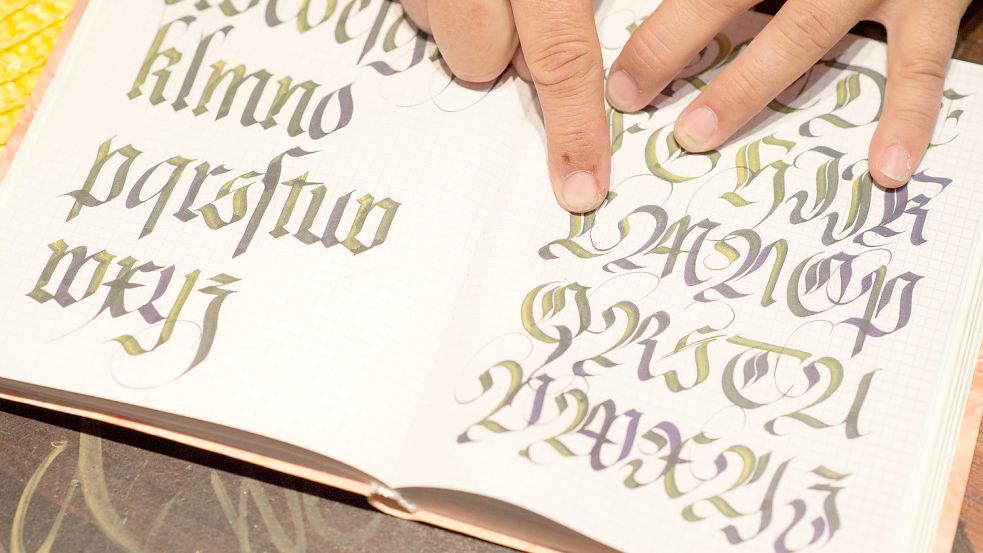 klmno
pqrsſtuv
wxyz
GHIJK
LMNOP
QRSTU
VWXYZ